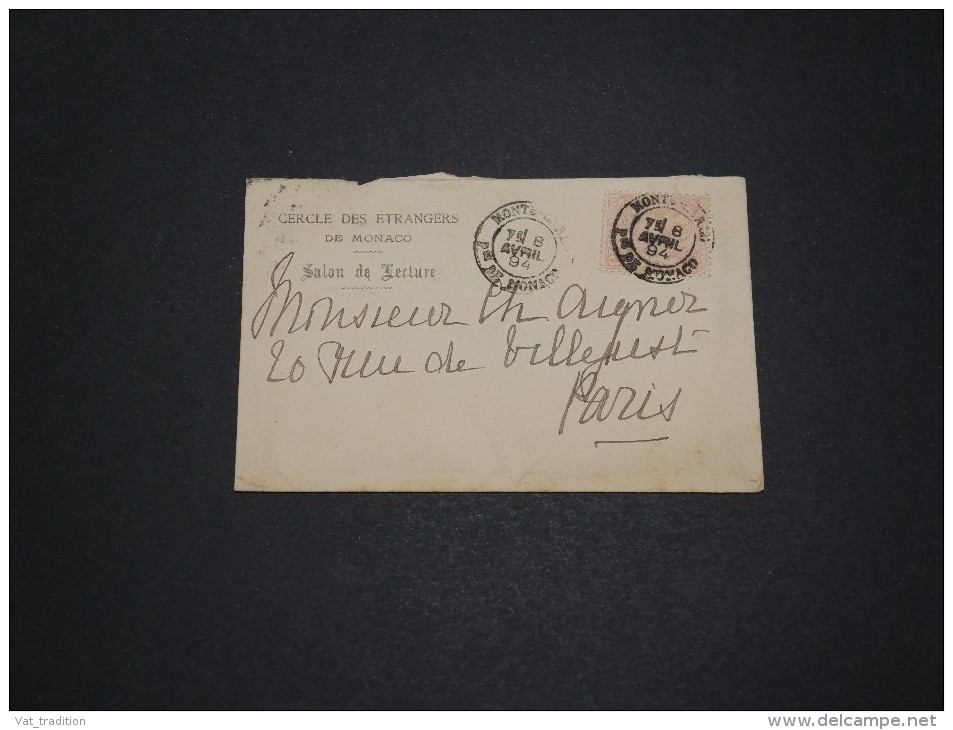 CERCLE DES ÉTRANGERS
DE MONACO
Salon de Lecture
MONTE
7E/ 8
AVRIL
94
PTÉ DE MONACO
MONTE
7E/ 8
AVRIL
94
PTÉ DE MONACO
Monsieur Ch Aigner
20 Rue de Villejust
Paris
Vat_tradition
delcampe.net